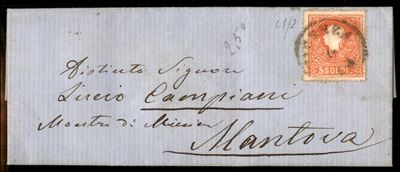 c1/2
2,50
5 SOLDI
Distinto Signore
Lucio Campiani
Maestro di Musica
Mantova